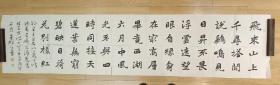 飛來山上
千尋塔聞
說雞鳴見
日昇不畏
浮雲遮望
眼自緣身
在最高層
畢竟西湖
六月中風
光不與四
時同接天
蓮葉無窮
碧映日荷
花別樣紅